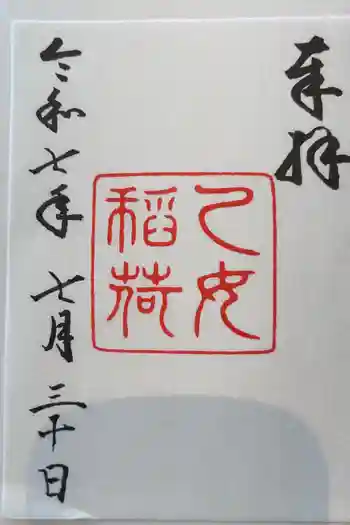 奉拝
乙女
稲荷
令和七年 七月 三十日